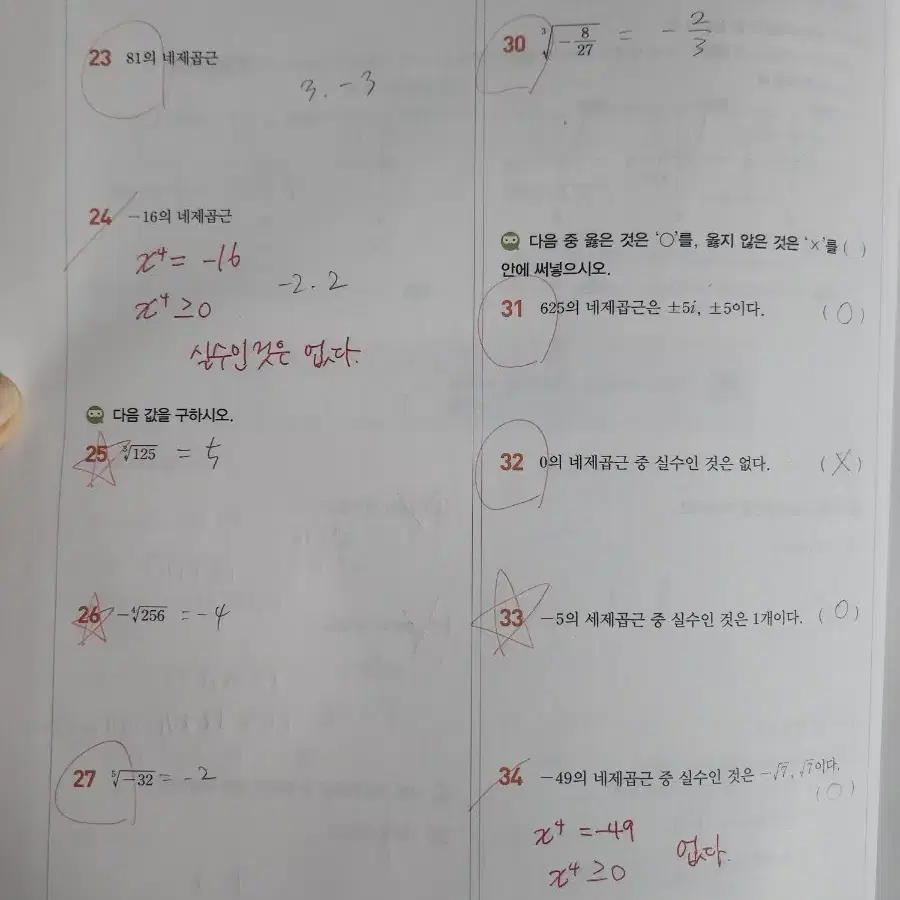 23 81의 네제곱근
3. -3
24 -16의 네제곱근
x⁴ = -16
-2. 2
x⁴ ≥ 0
실수인 것은 없다.
다음 값을 구하시오.
25 ∛125 = 5
26 -∜256 = -4
27 ⁵√-32 = -2
30 ∛-8/27 = -2/3
다음 중 옳은 것은 '○'를, 옳지 않은 것은 '×'를 ( )
안에 써넣으시오.
31 625의 네제곱근은 ±5i, ±5이다. (O)
32 0의 네제곱근 중 실수인 것은 없다. (X)
33 -5의 세제곱근 중 실수인 것은 1개이다. (O)
34 -49의 네제곱근 중 실수인 것은 -√7, √7이다.
(O)
x⁴ = -49
x⁴ ≥ 0 없다.